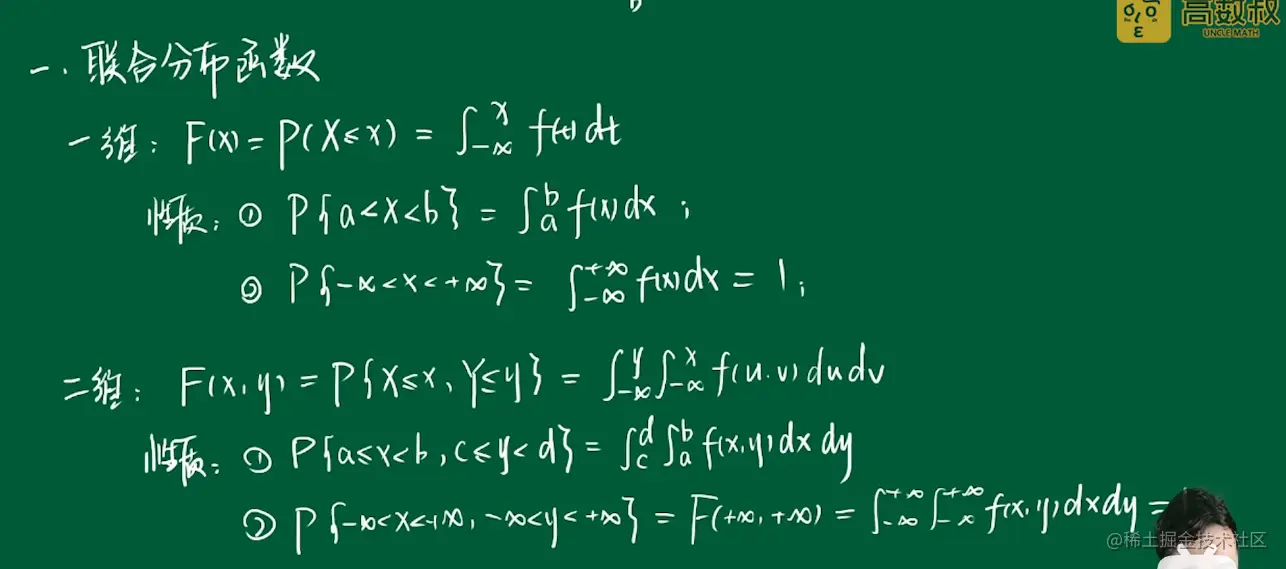 高数叔
UNCLE MATH
一. 联合分布函数
一维: F(x) = P(X≤x) = ∫_{-∞}^{x} f(t) dt
性质: ① P{a<X<b} = ∫_a^b f(x) dx ;
② P{-∞<X<+∞} = ∫_{-∞}^{+∞} f(x) dx = 1 ;
二维: F(x,y) = P{X≤x, Y≤y} = ∫_{-∞}^{y} ∫_{-∞}^{x} f(u,v) du dv
性质: ① P{a≤x<b, c≤y<d} = ∫_c^d ∫_a^b f(x,y) dx dy
② P{-∞<x<+∞, -∞<y<+∞} = F(+∞,+∞) = ∫_{-∞}^{+∞} ∫_{-∞}^{+∞} f(x,y) dx dy =
@稀土掘金技术社区